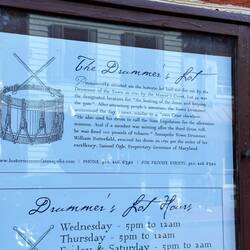 The Drummer's Lot
Prominently situated on the historic lot laid out for use by the
Drummer of the Town in 1747 by the Mayor's Court. Lot 94 was
the designated location for "the beating of the drum and keeping
the gate." After attracting people's attention, the Town Drummer
announced the day's news, similar to a Town Crier elsewhere.
"He also used his drum to call the State Legislature for the afternoon
session. And if a member was missing after the third drum roll,
he was fined 100 pounds of tobacco." Annapolis Town Drummer,
William Butterfield, executed his drum no 1751 for the order of his
excellency, Samuel Ogle, Proprietary Governor of Maryland.
PHONE
FOR PRIVATE EVENTS
Drummer's Lot Hours
Wednesday - 5pm to 12am
Thursday - 5pm to 12am
Friday & Saturday - 5pm to 2am